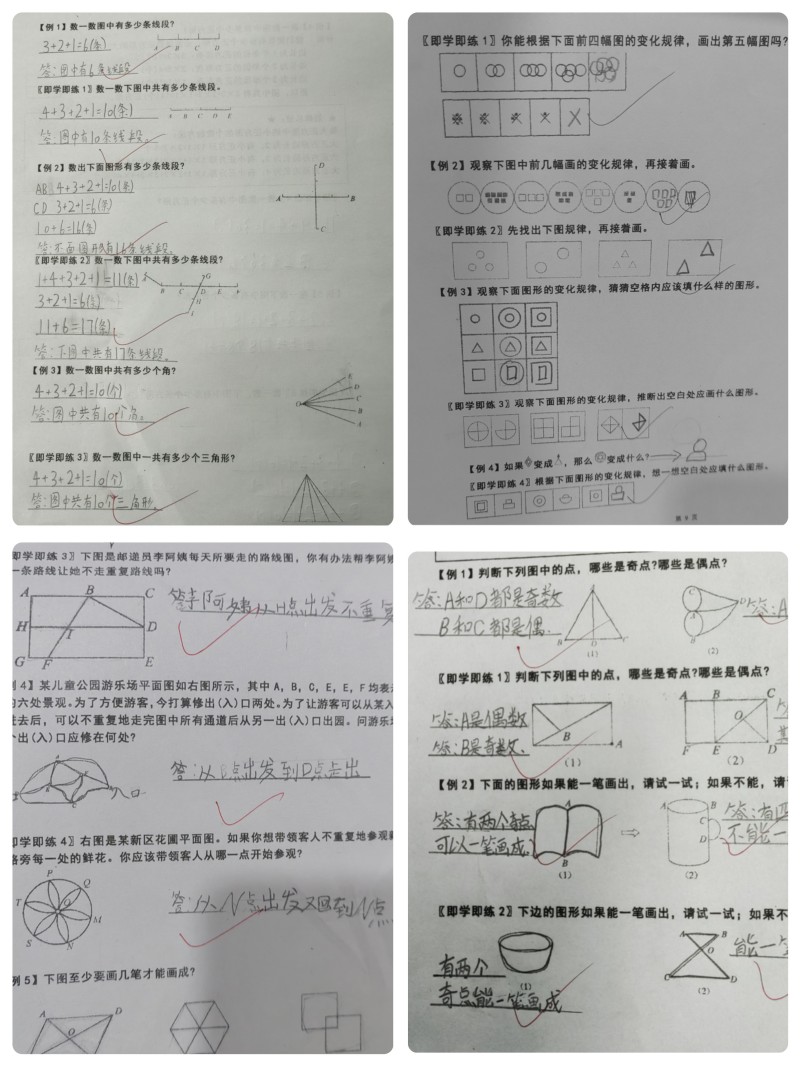 【例1】数一数图中有多少条线段?
3+2+1=6(条)
A B C D
答:图中有6条线段
〖即学即练1〗数一数下图中共有多少条线段。
4+3+2+1=10(条)
A B C D E
答:图中有10条线段。
【例2】数出下面图形有多少条线段?
AB 4+3+2+1=10(条)
CD 3+2+1=6(条)
10+6=16(条)
D
A B
C
〖即学即练2〗数一数下图中共有多少条线段?
1+4+3+2+1=11(条)
3+2+1=6(条)
11+6=17(条)
G
B C D E F
H
I
答:下图中共有17条线段。
【例3】数一数图中共有多少个角?
4+3+2+1=10(个)
答:图中共有10个角。
E
D
C
B
A
O
〖即学即练3〗数一数图中一共有多少个三角形?
4+3+2+1=10(个)
答:图中共有10个三角形.
〖即学即练1〗你能根据下面前四幅图的变化规律,画出第五幅图吗?
【例2】观察下图中前几幅画的变化规律,再接着画。
〖即学即练2〗先找出下图规律,再接着画。
【例3】观察下面图形的变化规律,猜猜空格内应该填什么样的图形。
〖即学即练3〗观察下面图形的变化规律,推断出空白处应画什么图形。
【例4】如果 变成 ,那么 变成什么?
〖即学即练4〗根据下面图形的变化规律,想一想空白处应填什么图形。
第 9 页
即学即练3〗下图是邮递员李阿姨每天所要走的路线图,你有办法帮李阿姨
一条路线让她不走重复路线吗?
A B C
H I D
G F E
答:李阿姨从H点出发不重复
例4】某儿童公园游乐场平面图如右图所示,其中A,B,C,E,E,F均表
的六处景观。为了方便游客,今打算修出(入)口两处。为了让游客可以从某入
进去后,可以不重复地走完图中所有通道后从另一出(入)口出园。问游乐
个出(入)口应修在何处?
点出发到D点走出
即学即练4〗右图是某新区花圃平面图。如果你想带领客人不重复地参观
路旁每一处的鲜花。你应该带领客人从哪一点开始参观?
P
Q
T
O
M
S
N
答:从N点出发又回到N点
例5】下图至少要画几笔才能画成?
A D
O
【例1】判断下列图中的点,哪些是奇点?哪些是偶点?
答:A和D都是奇数
B和C都是偶.
B D C
(1)
C
A
B
D
(2)
答:A
〖即学即练1〗判断下列图中的点,哪些是奇点?哪些是偶点?
答:A是偶数
答:B是奇数.
B A
(1)
A B C
O
F E D
(2)
【例2】下面的图形如果能一笔画出,请试一试;如果不能,请
答:有两个奇点
可以一笔画成.
A
B
(1)
A B
C
D
(2)
答:有四
不能一
〖即学即练2〗下边的图形如果能一笔画出,请试一试;如果不
有两个
奇点能一笔画成
(1)
A B
O
C D
(2)
能一